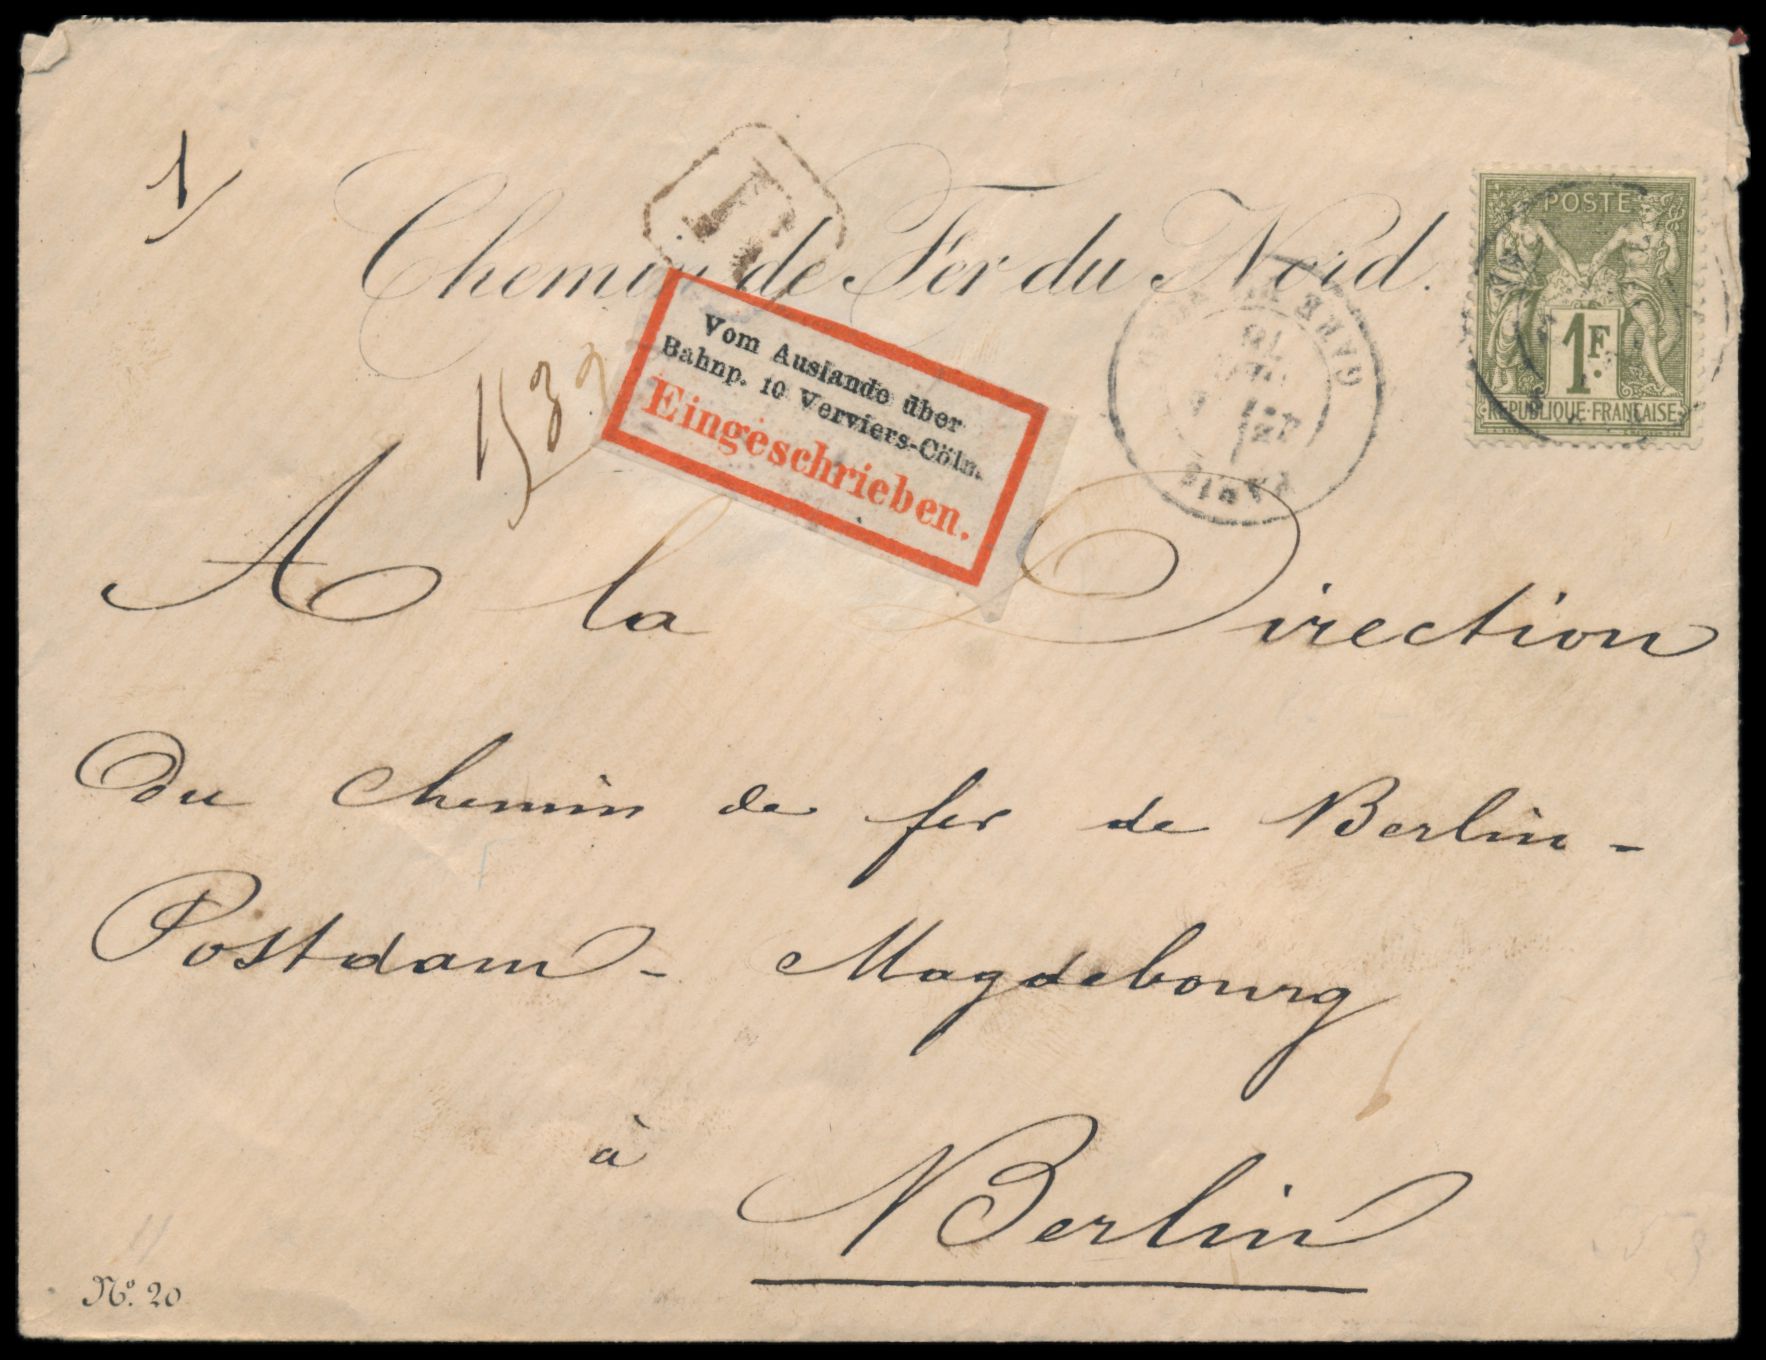 1/
Chemin de Fer du Nord.
R
POSTE
1F.
REPUBLIQUE·FRANÇAISE
GARE DU NORD
PARIS
Vom Auslande über
Bahnp. 10 Verviers-Cöln.
Eingeschrieben.
A la Direction
Du chemin de fer de Berlin-
Postdam - Magdebourg
à
Berlin
No. 20